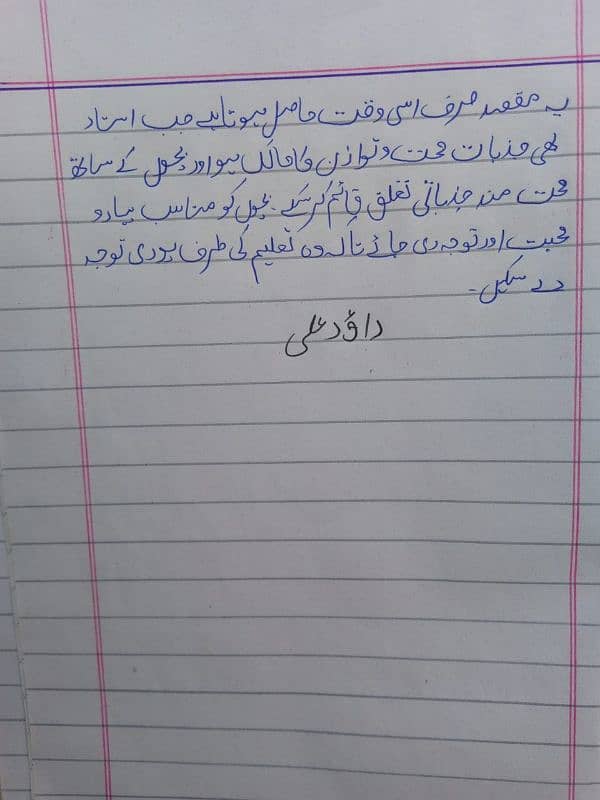 یہ مقصد صرف اسی وقت حاصل ہوتا ہے جب استاد
بھی جذبات صحت و توازن کا مالک ہو اور بچوں کے ساتھ
صحت مند جذباتی تعلق قائم کر سکے۔ بچوں کو مناسب پیار و
محبت اور توجہ دی جائے تاکہ وہ تعلیم کی طرف پوری توجہ
دے سکیں۔
داؤد علی